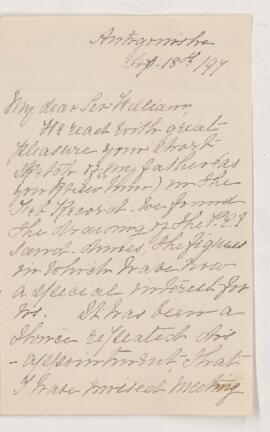 Antigonishe
Sep. 18th/97
My dear Sir William,
We read with great
pleasure your short
sketch of my father (as
you knew him) in the
Feb Record - We found
the drawing of the P.E.I
sand-dunes, the figures
in which have now
a special interest for
us. It has been a
thrice repeated dis
-appointment, that
I have missed meeting